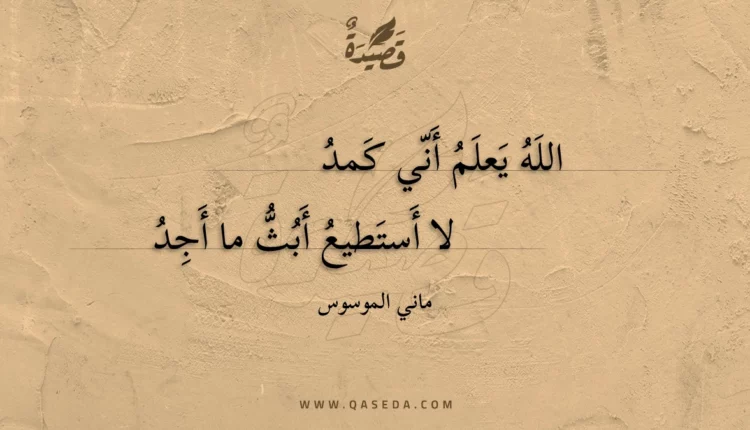 قَصِيْدَةٌ
اللَهُ يَعلَمُ أَنّي كَمدُ
لا أَستَطيعُ أَبُثُّ ما أَجِدُ
ماني الموسوس
WWW.QASEDA.COM